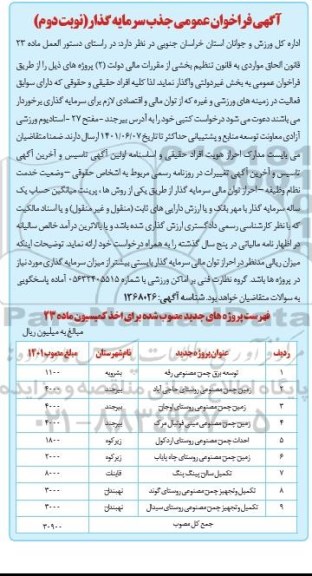 آگهی فراخوان عمومی جذب سرمایه گذار (نوبت دوم)
اداره کل ورزش و جوانان استان خراسان جنوبی در نظر دارد: در راستای دستور العمل ماده ۲۳
قانون الحاق مواردی به قانون تنظیم بخشی از مقررات مالی دولت (۲) پروژه های ذیل را از طریق
فراخوان عمومی به بخش غیردولتی واگذار نماید. لذا کلیه افراد حقیقی و حقوقی که دارای سوابق
فعالیت در زمینه های ورزشی و غیره که از توان مالی و اقتصادی لازم برای سرمایه گذاری برخوردار
می باشند دعوت می شود درخواست کتبی خود را به آدرس بیرجند - مفتح ۲۷ - استادیوم ورزشی
آزادی معاونت توسعه منابع و پشتیبانی حداکثر تا تاریخ ۱۴۰۱/۰۶/۰۷ ارسال دارند. ضمنا متقاضیان
می بایست مدارک احراز هویت افراد حقیقی و اساسنامه اولین آگهی تاسیس و آخرین آگهی
تاسیس و آخرین آگهی تغییرات در روزنامه رسمی مربوط به اشخاص حقوقی - وضعیت خدمت
نظام وظیفه - احراز توان مالی سرمایه گذار از طریق یکی از روش ها، پرینت میانگین حساب یک
ساله سرمایه گذار با مهر بانک و یا ارزش دارایی های ثابت (منقول و غیر منقول) و یا اسناد مالکیت
که با نظر کارشناسی رسمی دادگستری ارزش گذاری شده باشد و یا بالاترین درآمد خالص سالیانه
در اظهار نامه مالیاتی در پنج سال گذشته را به همراه درخواست خود ارائه نماید. توضیحات اینکه
میزان ریالی مدنظر در احراز توان مالی سرمایه گذار بایستی بیشتر از میزان سرمایه گذاری مورد نیاز
در پروژه ها باشد. گروه نظارت فنی بر اماکن ورزشی با شماره ۰۵۶۳۲۴۰۵۵۱۵ آماده پاسخگویی
به سوالات متقاضیان خواهد بود. شناسه آگهی: ۱۳۶۸۰۲۶
فهرست پروژه های جدید مصوب شده برای اخذ کمیسیون ماده ۲۳
مبالغ به میلیون ریال
ردیف عنوان پروژه جدید نام شهرستان مبلغ مصوب ۱۴۰۱
۱ توسعه برق چمن مصنوعی رقه بشرویه ۱۱۰۰
۲ زمین چمن مصنوعی روستای حاجی آباد بیرجند ۴۰۰۰
۳ زمین چمن مصنوعی روستای اوجان بیرجند ۴۰۰۰
۴ زمین چمن مصنوعی مینی فوتبال مرک بیرجند ۴۰۰۰
۵ احداث چمن مصنوعی اردکول زیرکوه ۱۸۰۰
۶ زمین چمن مصنوعی روستای چاه پایاب زیرکوه ۲۰۰۰
۷ تکمیل سالن پینگ پنگ قاینات ۸۰۰۰
۸ تکمیل و تجهیز چمن مصنوعی روستای گوند نهبندان ۳۰۰۰
۹ تکمیل و تجهیز چمن مصنوعی روستای سیدال نهبندان ۳۰۰۰
جمع کل مصوب ۳۰۹۰۰